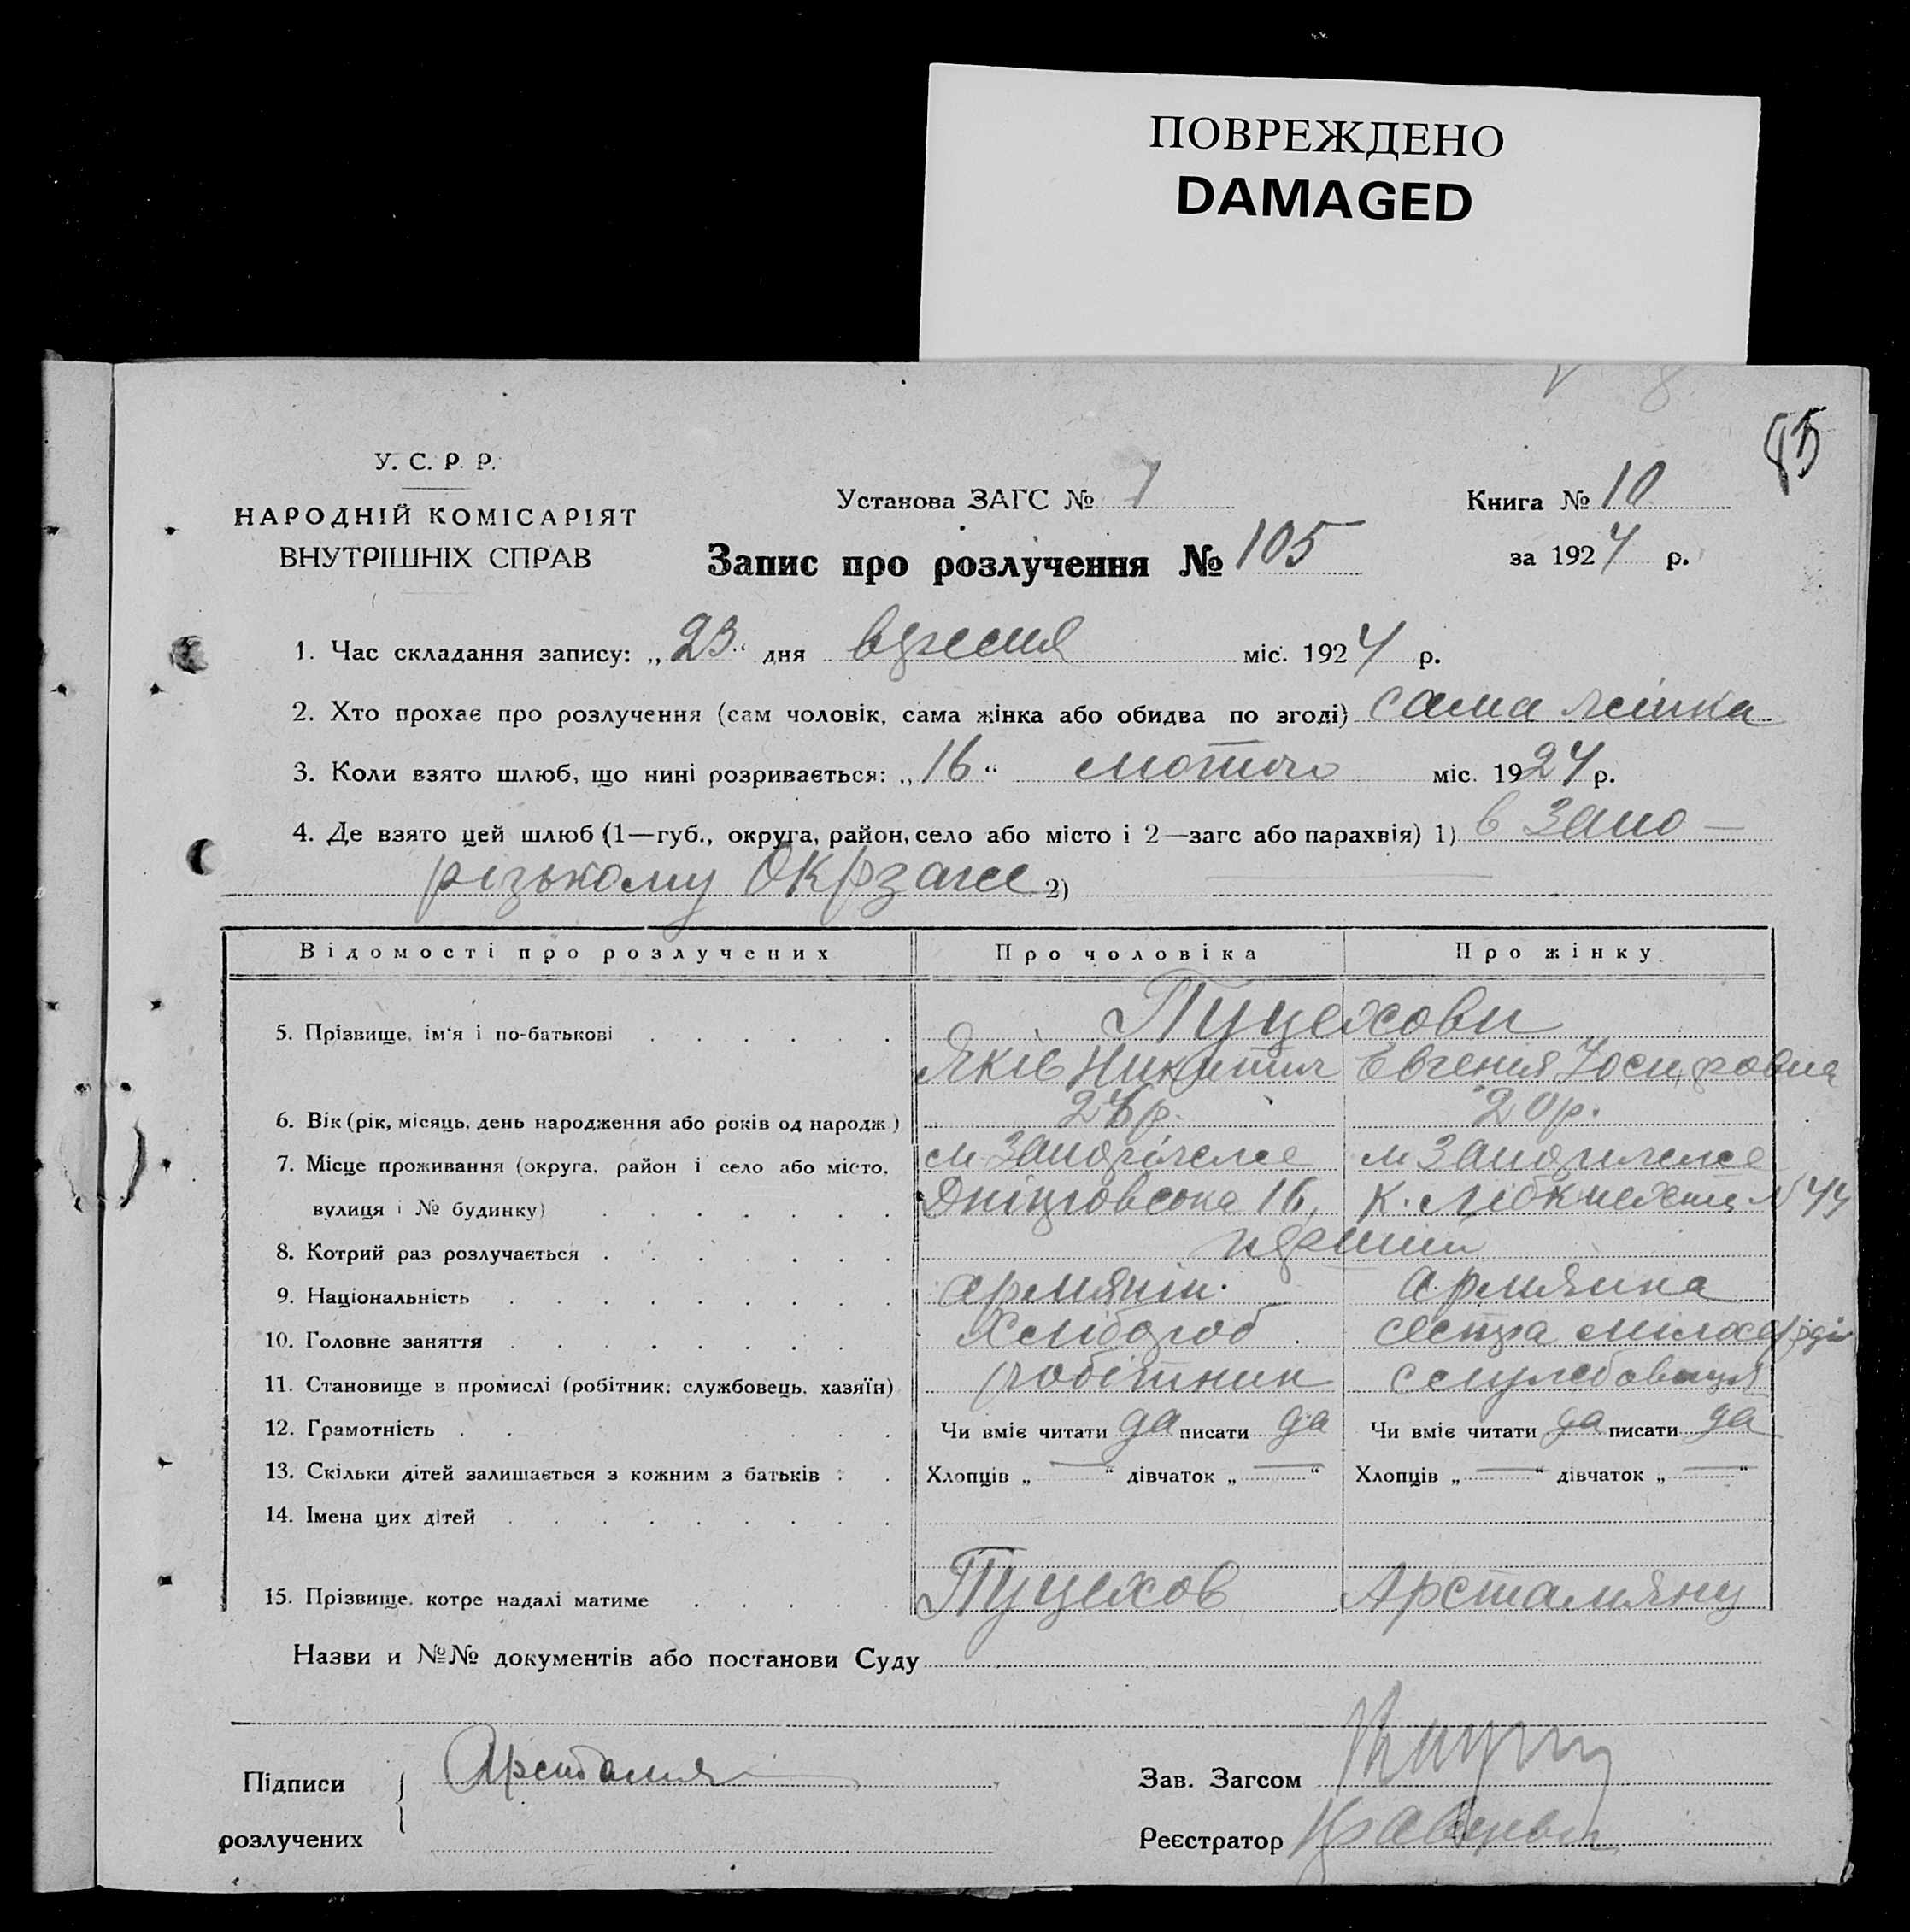 ПОВРЕЖДЕНО
DAMAGED
85
У. С. Р. Р.
НАРОДНІЙ КОМІСАРІЯТ
ВНУТРІШНІХ СПРАВ
Установа ЗАГС №
Книга № 10
Запис про розлучення № 105
за 1924 р.
1. Час складання запису: „23“ дня вресня міс. 1924 р.
2. Хто прохає про розлучення (сам чоловік, сама жінка або обидва по згоді) сама жінка
3. Коли взято шлюб, що нині розривається: „16“ лютого міс. 1924 р.
4. Де взято цей шлюб (1—губ., округа, район, село або місто і 2—загс або парахвія) 1) в Запо-
різькому Окрзагсе 2)
Відомості про розлучених Про чоловіка Про жінку
5. Прізвище, ім'я і по-батькові Пуцехови
Яків Никитич Евгения Иосифовна
6. Вік (рік, місяць, день народження або років од народж.) р. 20 р.
7. Місце проживання (округа, район і село або місто, м Запоріжже м Запоріжже
вулиця і № будинку) Дніпровська 16, К. Лібкнехта №44
8. Котрий раз розлучається перший
9. Національність армянін. армянка
10. Головне заняття Хлібороб сестра мілосердія
11. Становище в промислі (робітник, службовець, хазяїн) робітник службовиця
12. Грамотність Чи вміє читати да писати да Чи вміє читати да писати да
13. Скільки дітей залишається з кожним з батьків Хлопців „—“ дівчаток „—“ Хлопців „—“ дівчаток „—“
14. Імена цих дітей
15. Прізвище, котре надалі матиме Пуцехов Арстамяну
Назви и №№ документів або постанови Суду
Підписи Арстамян
розлучених
Зав. Загсом
Реєстратор